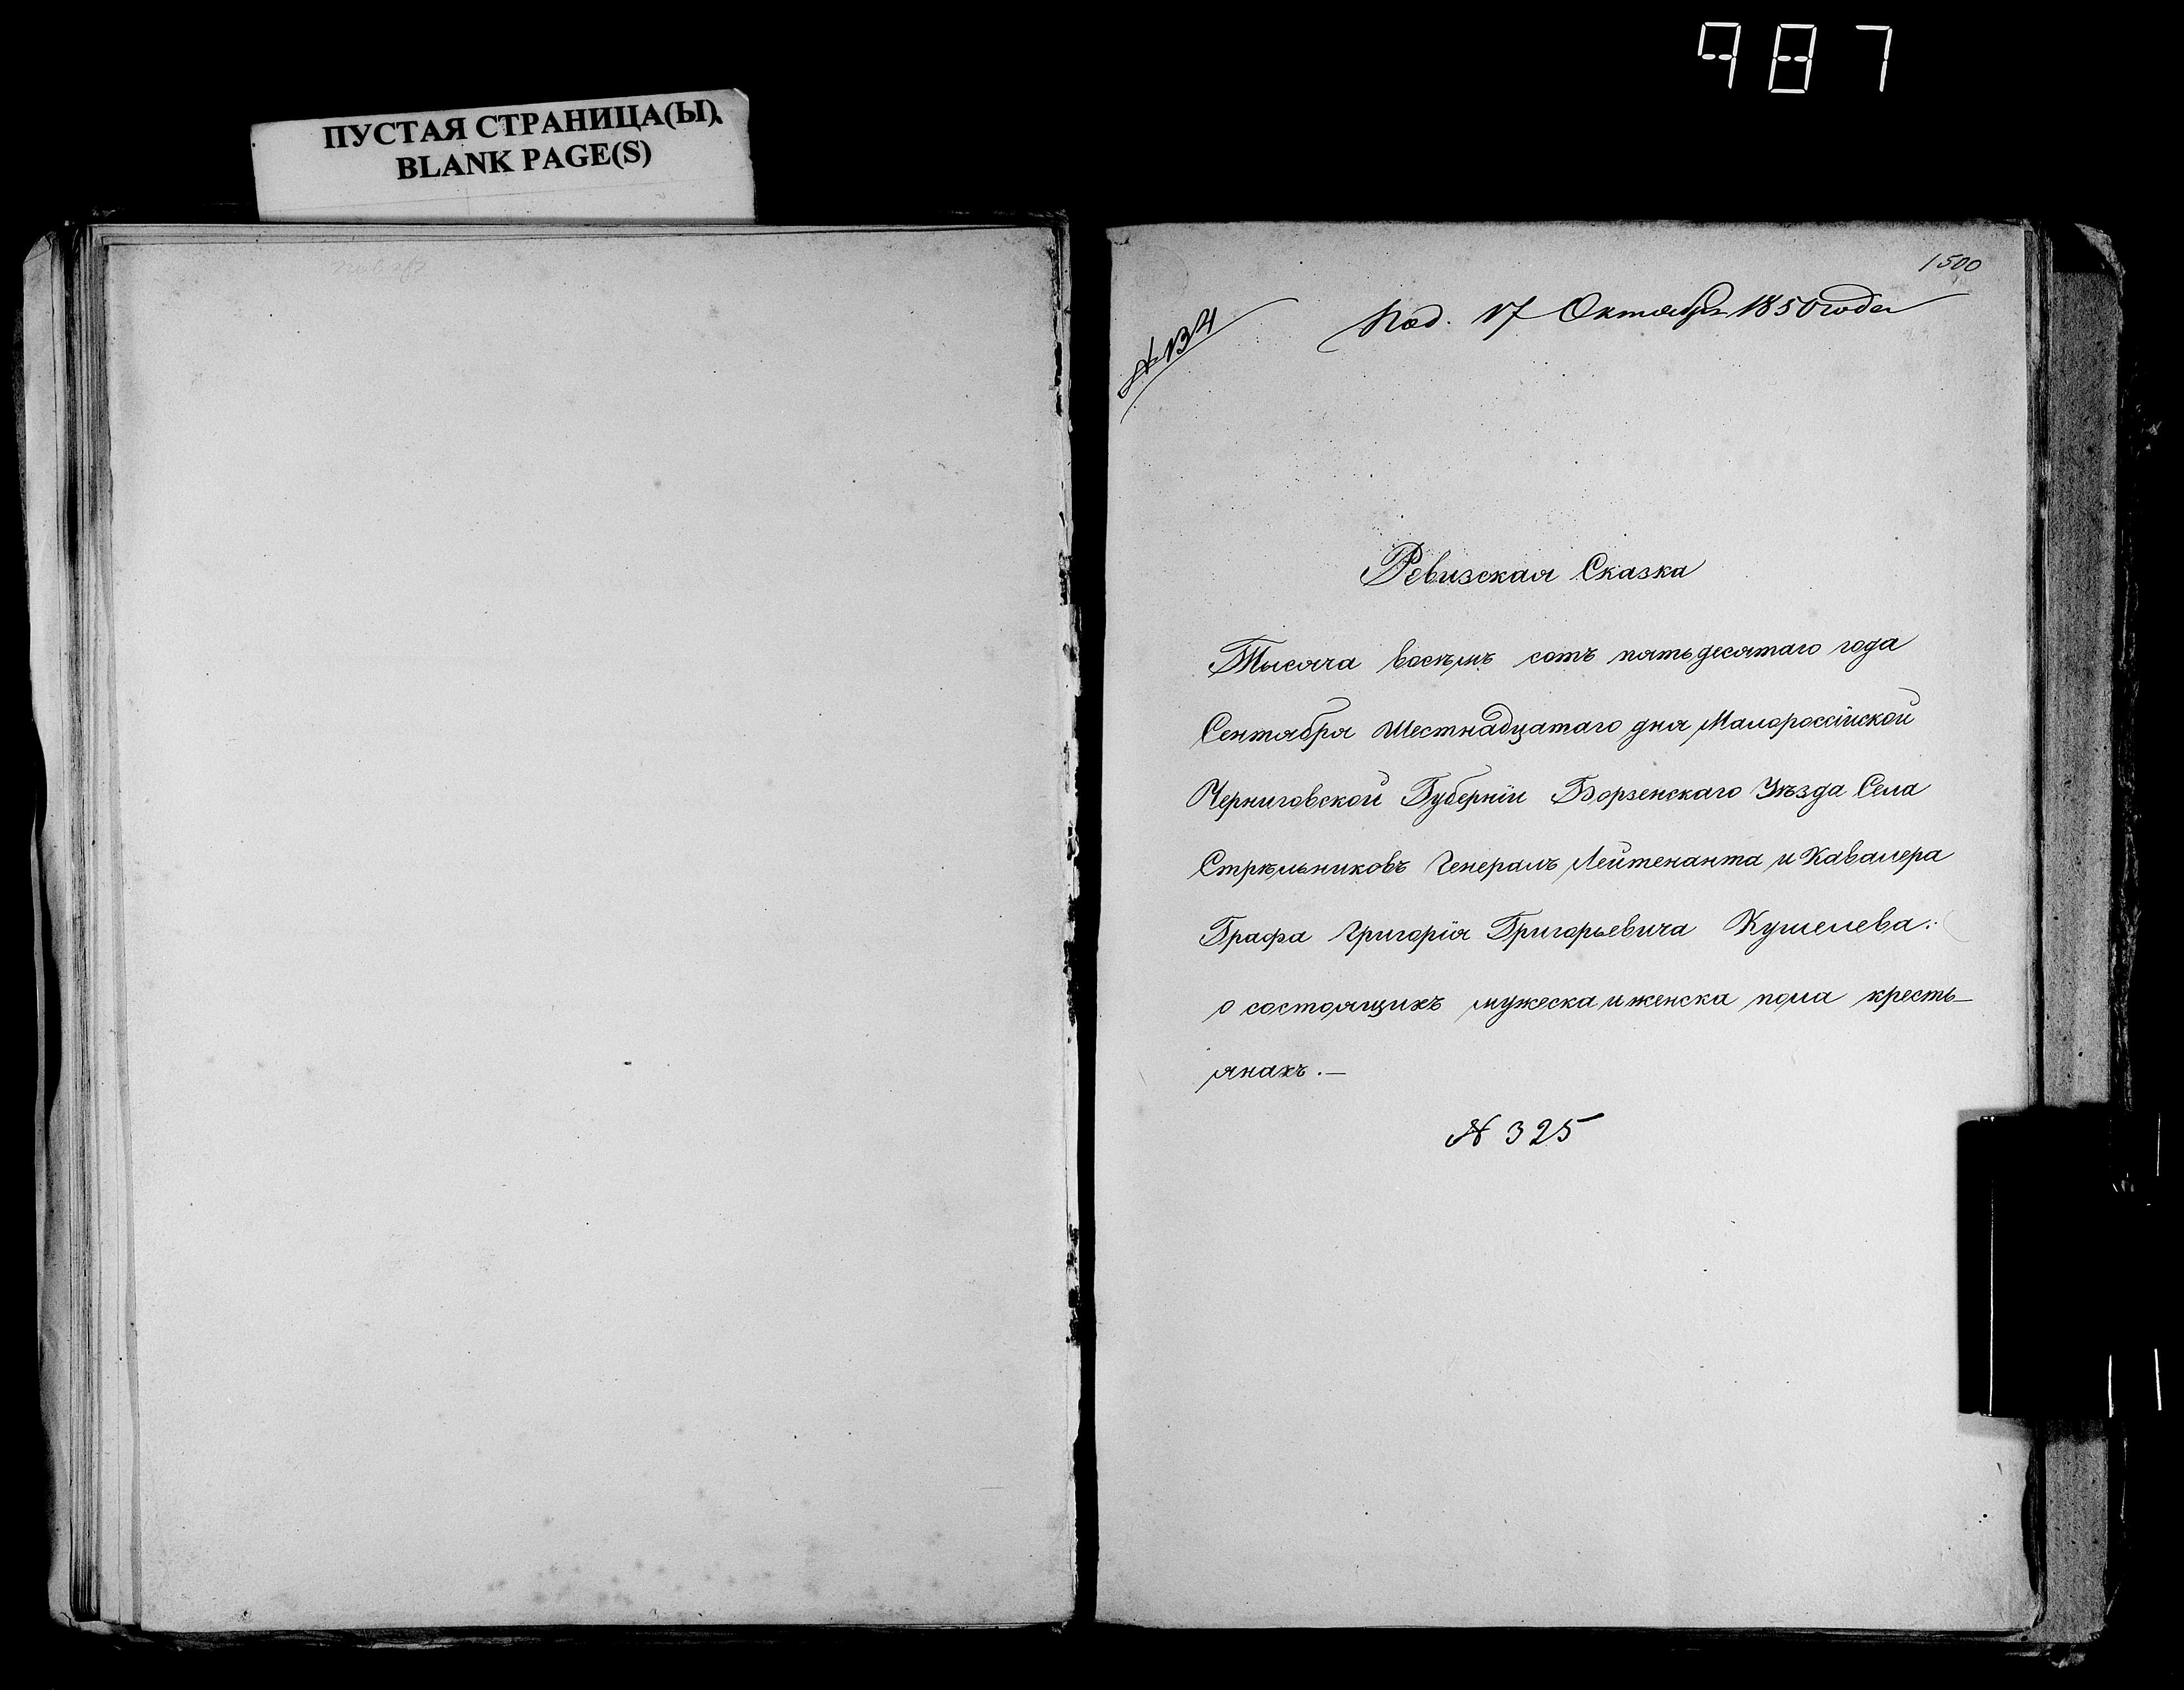 987
ПУСТАЯ СТРАНИЦА(Ы)
BLANK PAGE(S)
1500
№ 134
Под. 17 Октября 1850 года
Ревизская Сказка
Тысяча восѣмъ сотъ пятьдесятаго года
Сентября Шестнадцатаго дня Малороссійской
Черниговской Губерніи Борзенскаго Уѣзда Села
Стрѣльниковъ Генералъ Лейтенанта и Кавалера
Графа Григорія Григорьевича Кушелева.
о состоящихъ мужеска и женска пола кресть-
янахъ.—
№ 325